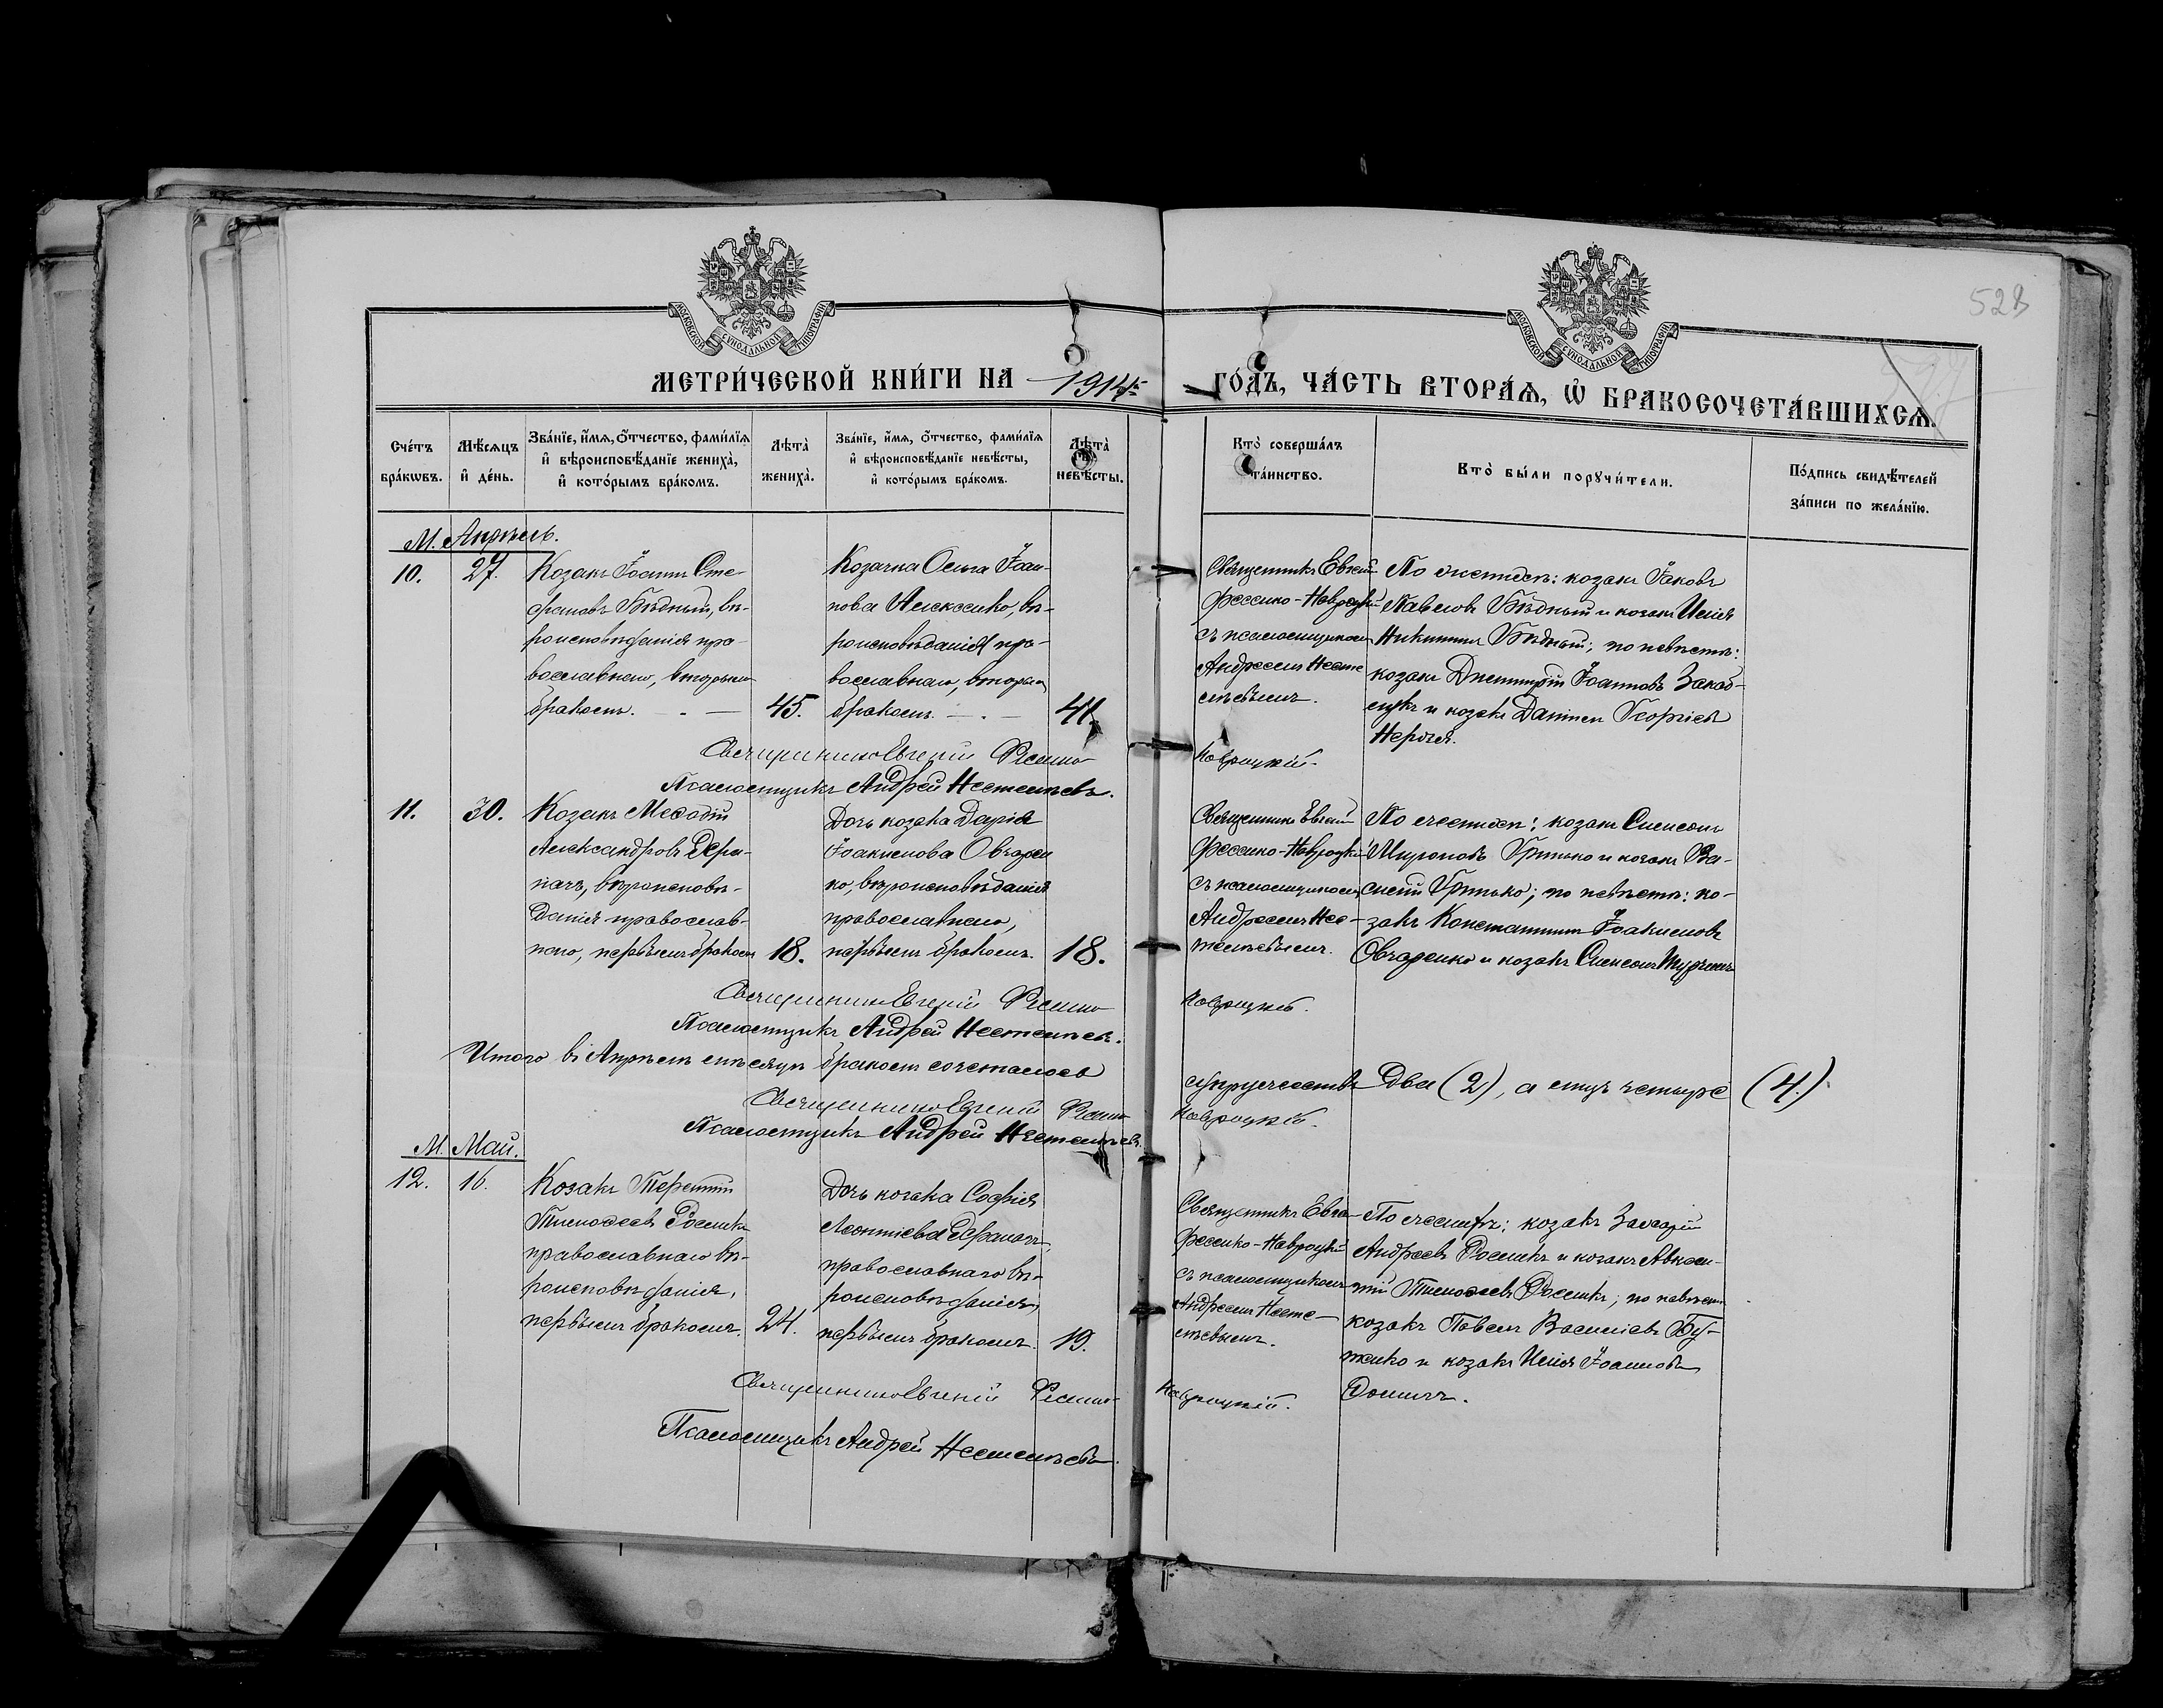 528
МОСКОВСКОЙ СѴНОДАЛЬНОЙ ТИПОГРАФІИ
МОСКОВСКОЙ СѴНОДАЛЬНОЙ ТИПОГРАФІИ
МЕТРИ́ЧЕСКОЙ КНИ́ГИ НА 1914 ГО́ДЪ, ЧА́СТЬ ВТОРА́Ѧ, Ѡ҆ БРАКОСОЧЕТА́ВШИХСѦ.
Сче́тъ бра́кѡвъ.
Мѣ́сѧцъ и҆ де́нь.
Зва́нїе, и҆́мѧ, ѻ҆́тчество, фами́лїѧ
и҆ вѣроисповѣ́данїе жениха̀,
и҆ кото́рымъ бра́комъ.
Лѣ́та̀ жениха̀.
Зва́нїе, и҆́мѧ, ѻ҆́тчество, фами́лїѧ
и҆ вѣроисповѣ́данїе невѣ́сты,
и҆ кото́рымъ бра́комъ.
Лѣ́та̀ невѣ́сты.
Кто̀ соверша́лъ
та́инство.
Кто̀ бы́ли порꙋчи́тели.
По́дпись свидѣ́телей
за́писи по жела́нїю.
М. Апрѣль.
10.
27.
Козакъ Іоаннъ Сте-
фановъ Бѣдный, вѣ-
роисповѣданія пра-
вославнаго, вторымъ
бракомъ.
45.
Козачка Ольга Іоан-
нова Алексенко, вѣ-
роисповѣданія пра-
вославнаго, вторым
бракомъ.
41.
Священникъ Евгеній
Фесенко-Навроцкій
съ псаломщикомъ
Андреемъ Несте
лѣевымъ.
По женихѣ: козакъ Іаковъ
Павловъ Бѣдный и козакъ Илія
Никитинъ Бѣдный; по невѣстѣ:
козакъ Димитрій Іоанновъ
и козакъ Даніилъ Георгіевъ
Священникъ Евгеній Фесенко-
Навроцкій.
Псаломщикъ Андрей
11.
30.
Козакъ Меѳодій
Александровъ Дера-
качъ, вѣроисповѣ-
данія православ-
наго, первымъ бракомъ
18.
Дочь козака Дарія
Іоакимова Овчарен
ко, вѣроисповѣданія
православнаго,
первымъ бракомъ.
18.
Священникъ Евгеній
Фесенко-Навроцкій
съ псаломщикомъ
Андреемъ Нес-
По женихѣ: козакъ Симеонъ
Мироновъ Гринько и козакъ Ва-
силій Гринько; по невѣстѣ: ко-
закъ Константинъ Іоакимовъ
Овчаренко и козакъ Симеонъ
Священникъ Евгеній Фесенко
Навроцкій.
Псаломщикъ Андрей
Итого въ Апрѣлѣ мѣсяцѣ бракомъ сочеталось
супружествъ два (2), а лицъ четыре (4).
Священникъ Евгеній Фесенко
Навроцкій.
Псаломщикъ Андрей
М. Май.
12.
16.
Козакъ Терентій
Тимоѳеевъ
православнаго вѣ-
роисповѣданія,
первымъ бракомъ.
24.
Дочь козака Софія
Леонтіева
православнаго вѣ-
роисповѣданія,
первымъ бракомъ.
19.
Священникъ Евген
Фесенко-Навроцкій
съ псаломщикомъ
Андреемъ Несте-
По женихѣ: козакъ Захарій
Андреевъ и козакъ Авксен-
тій Тимоѳеевъ; по невѣстѣ
козакъ Павелъ Василіевъ
и козакъ Илія Іоанновъ
Священникъ Евгеній Фесенко-
Навроцкій.
Псаломщикъ Андрей